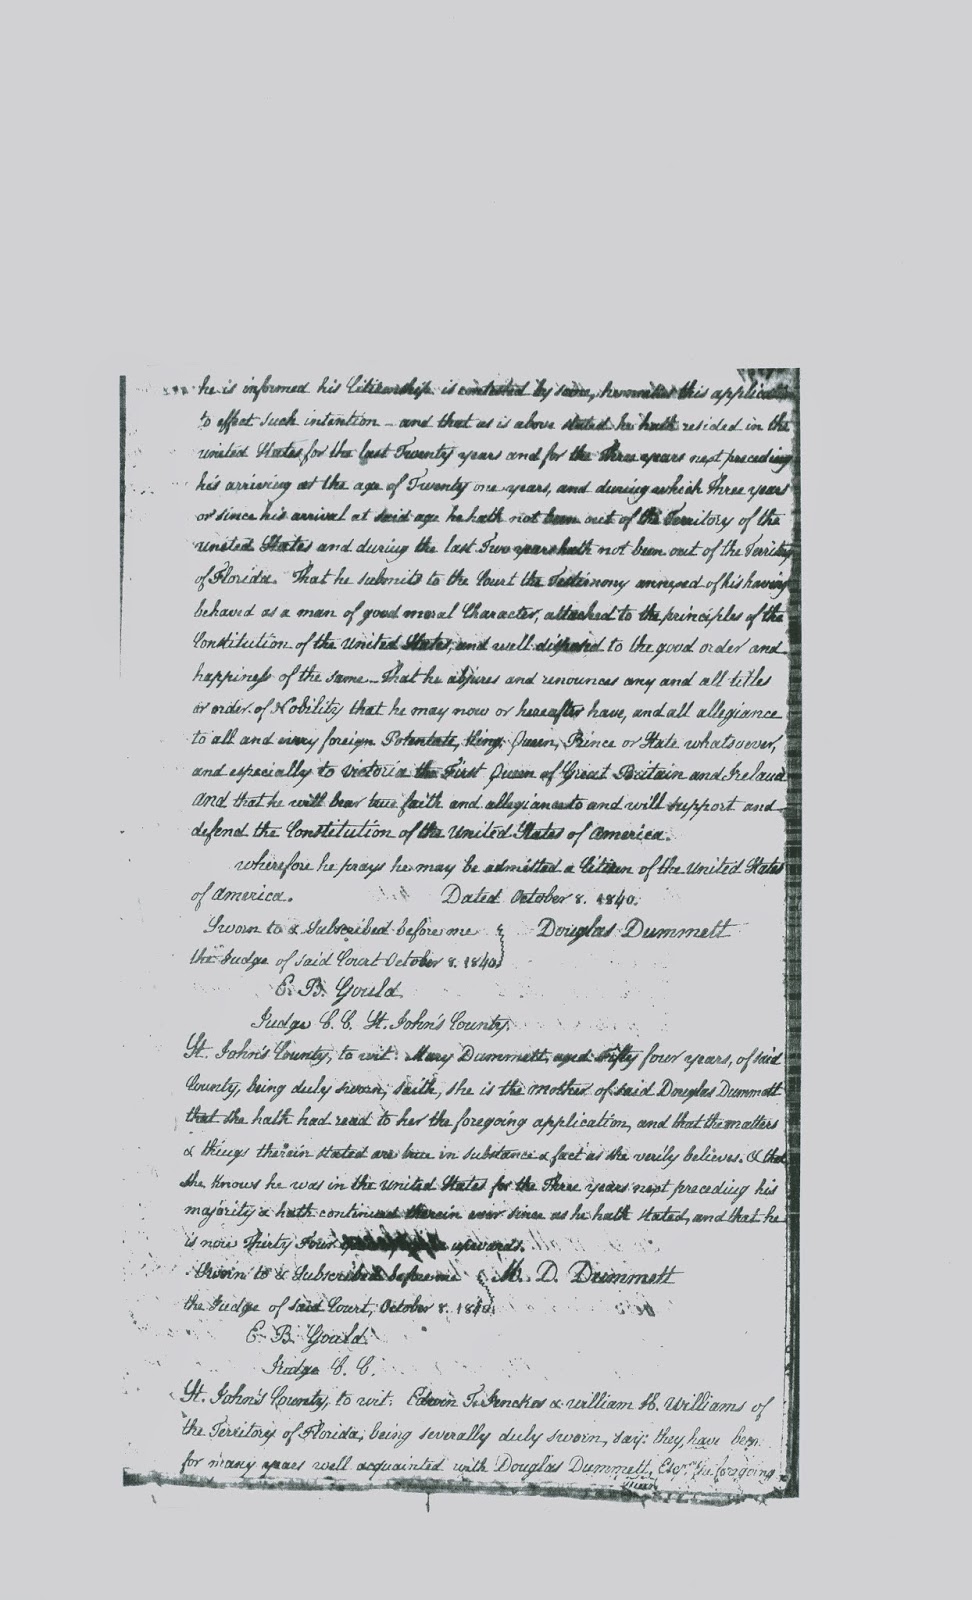 he is informed his Citizenship is contested by some, he makes this applica
to effect such intention – and that as is above stated he hath resided in the
united States for the last Twenty years and for the Three years next preceding
his arriving at the age of Twenty one years, and during which Three years
or since his arrival at said age he hath not been out of the Territory of the
United States and during the last Two years hath not been out of the Territory
of Florida. That he submits to the Court the Testimony annexed of his having
behaved as a man of good moral Character, attached to the principles of the
Constitution of the United States, and well disposed to the good order and
happiness of the same – That he abjures and renounces any and all titles
or order of Nobility that he may now or hereafter have, and all allegiance
to all and every foreign Potentate, King, Queen, Prince or State whatsoever,
and especially to Victoria the First Queen of Great Britain and Ireland
and that he will bear true faith and allegiance to and will support and
defend the Constitution of the United States of America.
wherefore he prays he may be admitted a Citizen of the United States
of America. Dated October 8. 1840.
Sworn to & Subscribed before me Douglas Dummett
the Judge of said Court October 8. 1840
E. B. Gould
Judge C. C. St. John's County.
St. John's County, to wit: Mary Dummett, aged Fifty four years, of said
County, being duly sworn, saith, she is the mother of said Douglas Dummett
that she hath had read to her the foregoing application, and that the matters
& things therein stated are true in substance & fact as she verily believes. & that
she knows he was in the United States for the Three years next preceding his
majority & hath continued therein ever since as he hath stated, and that he
is now Thirty Four upwards.
Sworn to & Subscribed before me M. D. Dummett
the Judge of said Court, October 8. 1840.
E. B. Gould
Judge C. C.
St. John's County, to wit. Edwin T. Jenckes & William H. Williams of
the Territory of Florida, being severally duly sworn, say: they have been
for many years well acquainted with Douglas Dummett, Esqr. the foregoing